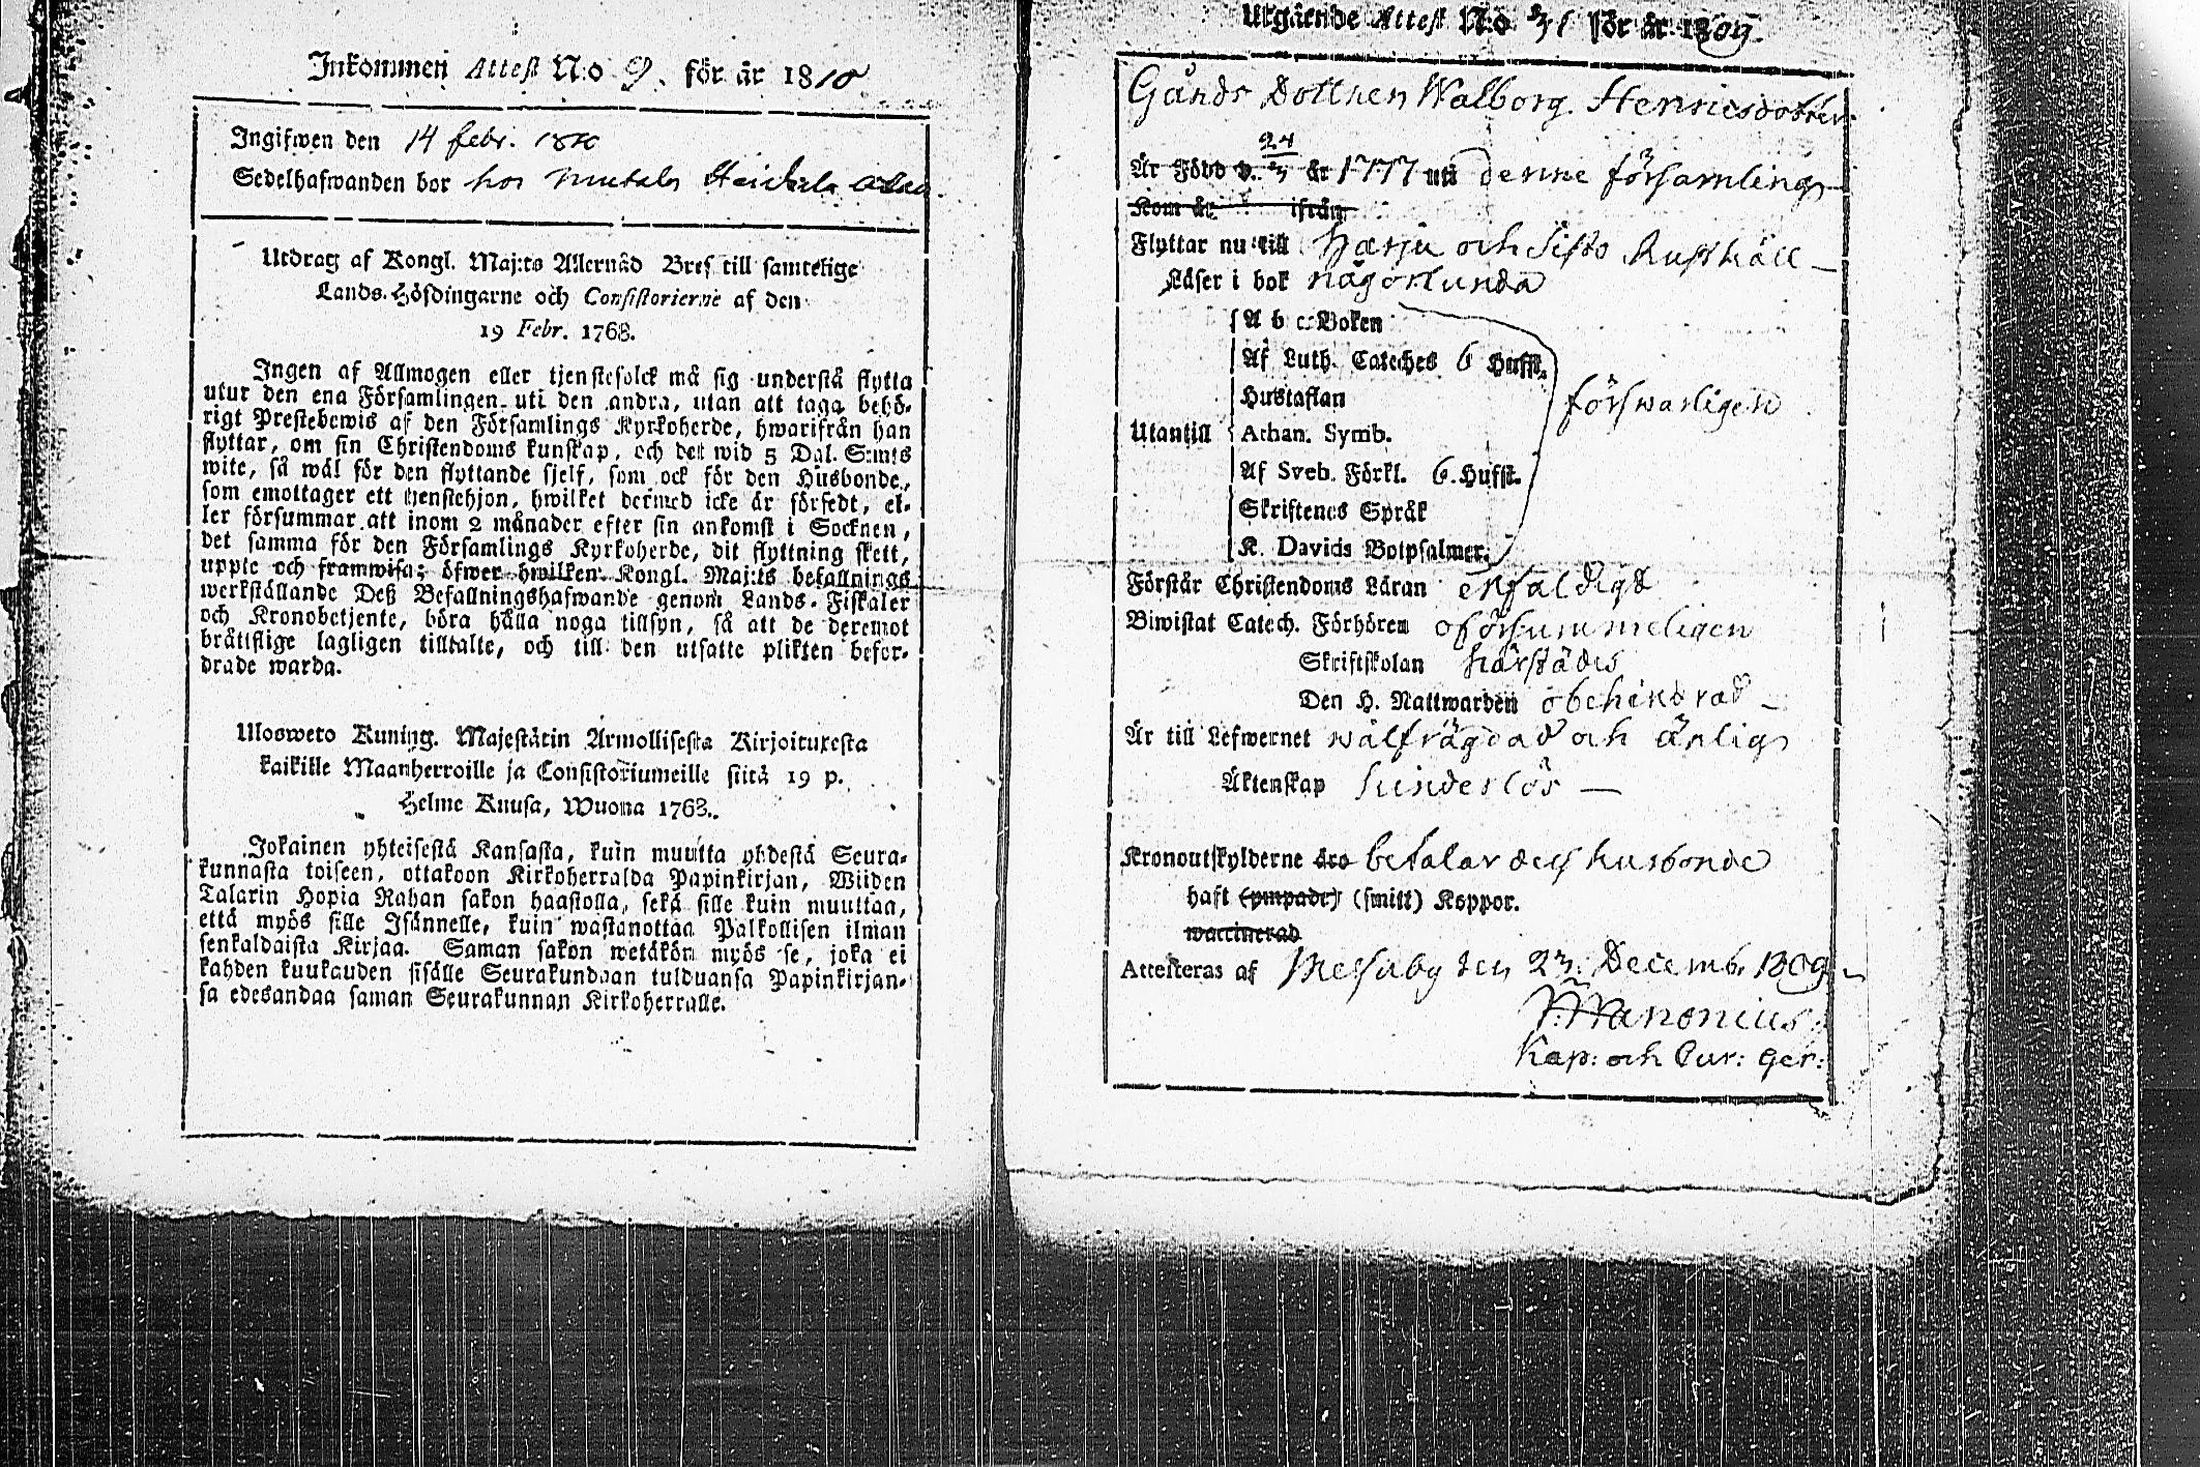 Inkommen Attest N:o 9. för år 1810
Ingifwen den 14 febr. 1810
Sedelhafwanden bor hos
Utdrag af Kongl. Maj:ts Allernåd Bref till samtelige
Lands-Höfdingarne och Consistorierne af den
19 Febr. 1768.
Ingen af Allmogen eller tjenstefolck må sig understå flytta
utur den ena Församlingen uti den andra, utan att taga behö-
rigt Prestebewis af den Församlings Kyrkoherde, hwarifrån han
flyttar, om sin Christendoms kunskap, och det wid 5 Dal. S:mts
wite, så wäl för den flyttande sjelf, som ock för den Husbonde,
som emottager ett tjenstehjon, hwilket dermed icke är försedt, el-
ler försummar att inom 2 månader efter sin ankomst i Socknen,
det samma för den Församlings Kyrkoherde, dit flyttning skett,
uppte och framwisa; öfwer hwilken Kongl. Maj:ts befallnings
werkställande Deß Befallningshafwande genom Lands-Fiskaler
och Kronobetjente, böra hålla noga tillsyn, så att de deremot
bråttslige lagligen tilltalte, och till den utsatte plikten befor-
drade warda.
Ulosweto Kuning. Majestätin Armollisesta Kirjoituxesta
kaikille Maanherroille ja Consistoriumeille siitä 19 p.
Helme Kuusa, Wuonna 1768.
Jokainen yhteisestä Kansasta, kuin muutta yhdestä Seura-
kunnasta toiseen, ottakoon Kirkoherralda Papinkirjan, Wiiden
Talarin Hopia Rahan sakon haastolla, sekä sille kuin muuttaa,
että myös sille Isännelle, kuin wastanottaa Palkollisen ilman
senkaldaista Kirjaa. Saman sakon wetäkön myös se, joka ei
kahden kuukauden sisälle Seurakundaan tulduansa Papinkirjan-
sa edesandaa saman Seurakunnan Kirkoherralle.
Utgående Attest N:o 31 för år 1809.
Gånds Dottren Walborg Henricsdotter
Är Född d. 24/3 år 1777 uti denne församling
Kom år ifrån
Flyttar nu till Harju och Sifto Rusthåll
Läser i bok någorlunda
A b c-Boken
Af Luth. Cateches 6 Hufst.
Hustaflan
försvarligen
Utantill Athan. Symb.
Af Sveb. Förkl. 6. Hufst.
Skriftenes Språk
K. Davids Botpsalmer.
Förstår Christendoms Läran enfaldigt
Biwistat Catech. Förhören oförsummeligen
Skriftskolan härstädes
Den H. Nattwarden obehindrad
Är till Lefwernet wälfrägdad och ärlig
Äktenskap hinderlös
Kronoutskylderne äro betalar dess husbonde
haft (ympade) (smitt) Koppor.
waccinerad
Attesteras af Messuby den 23. Decemb. 1809
Wanonius
Kap: och Cur: ger: